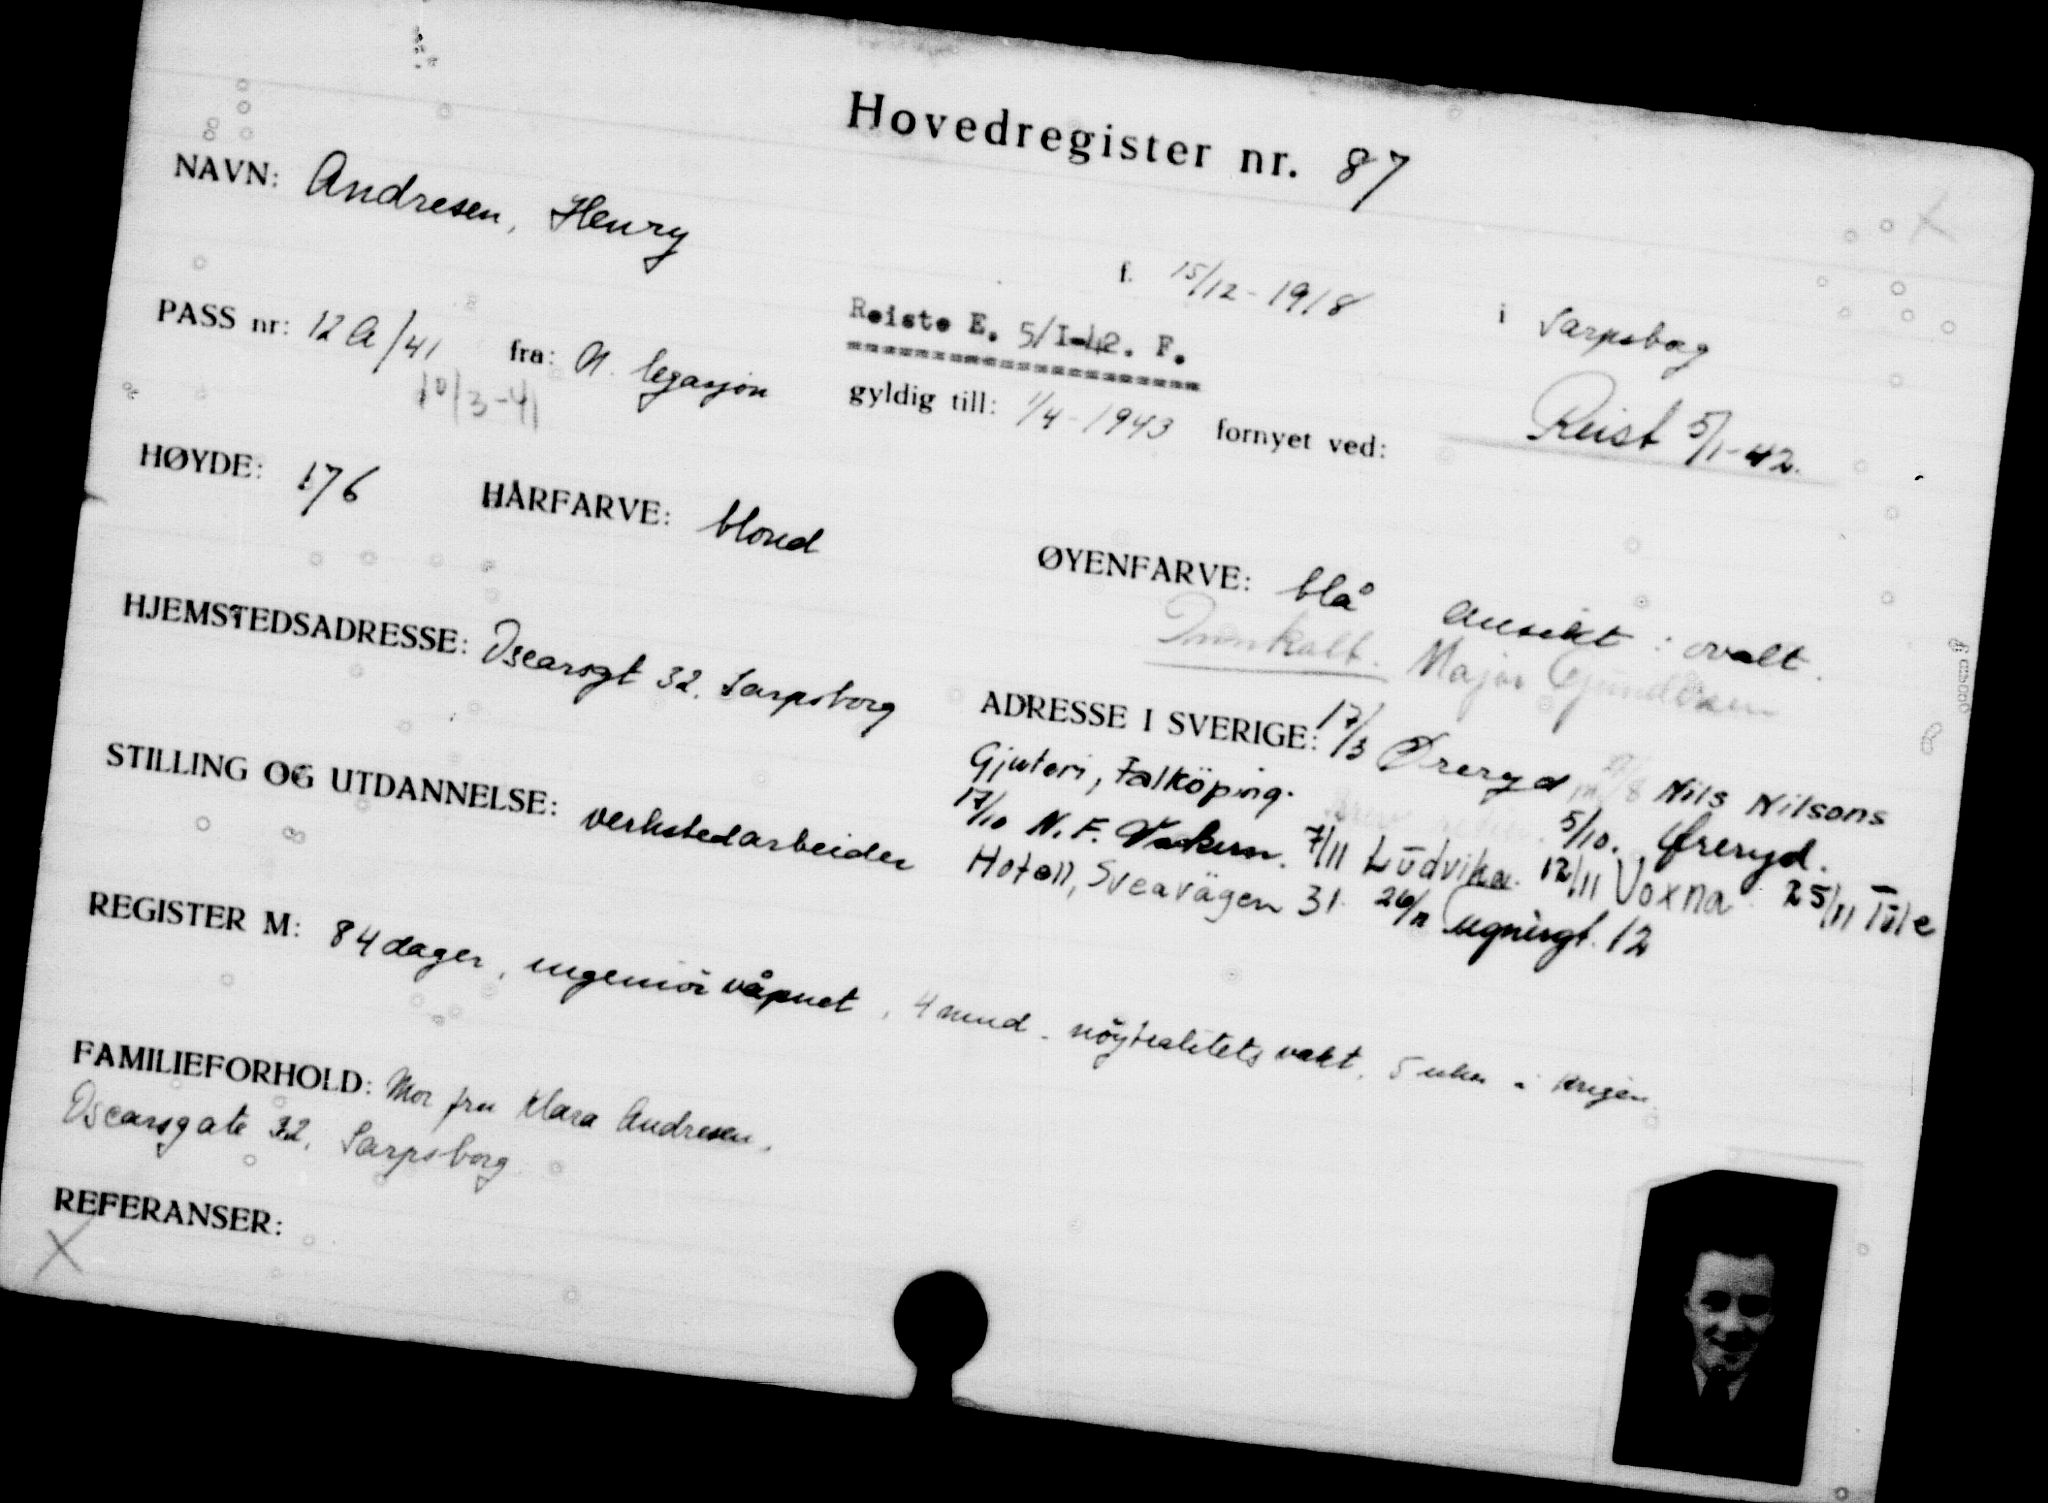 Hovedregister nr. 87
NAVN: Andresen, Henry
f. 15/12-1918 i Sarpsborg
PASS nr: 12A/41 fra: N. legasjon
10/3-41
Reiste E. 5/I-42. F.
gyldig till: 1/4-1943 fornyet ved:
Reist 5/1-42.
HØYDE: 176 HÅRFARVE: blond
ØYENFARVE: blå Ansikt: ovalt.
Innkalt. Major
HJEMSTEDSADRESSE: Oscarsgt 32. Sarpsborg
ADRESSE I SVERIGE: 17/3 Øreryd Nils Nilsons
Gjuteri, Falköping. 5/10. Øreryd.
17/10 N.F. 7/11 Ludvika. 12/11 Voxna 25/11 Tule
Hotell, Sveavägen 31. 26/11 Lugnusgt. 12
STILLING OG UTDANNELSE: verkstedarbeider
REGISTER M: 84 dager, ingeniørvåpnet, 4 mnd. nøytralitetsvakt. 5 uker i krigen
FAMILIEFORHOLD: Mor fru Klara Andresen,
Oscarsgate 32, Sarpsborg
REFERANSER:
X